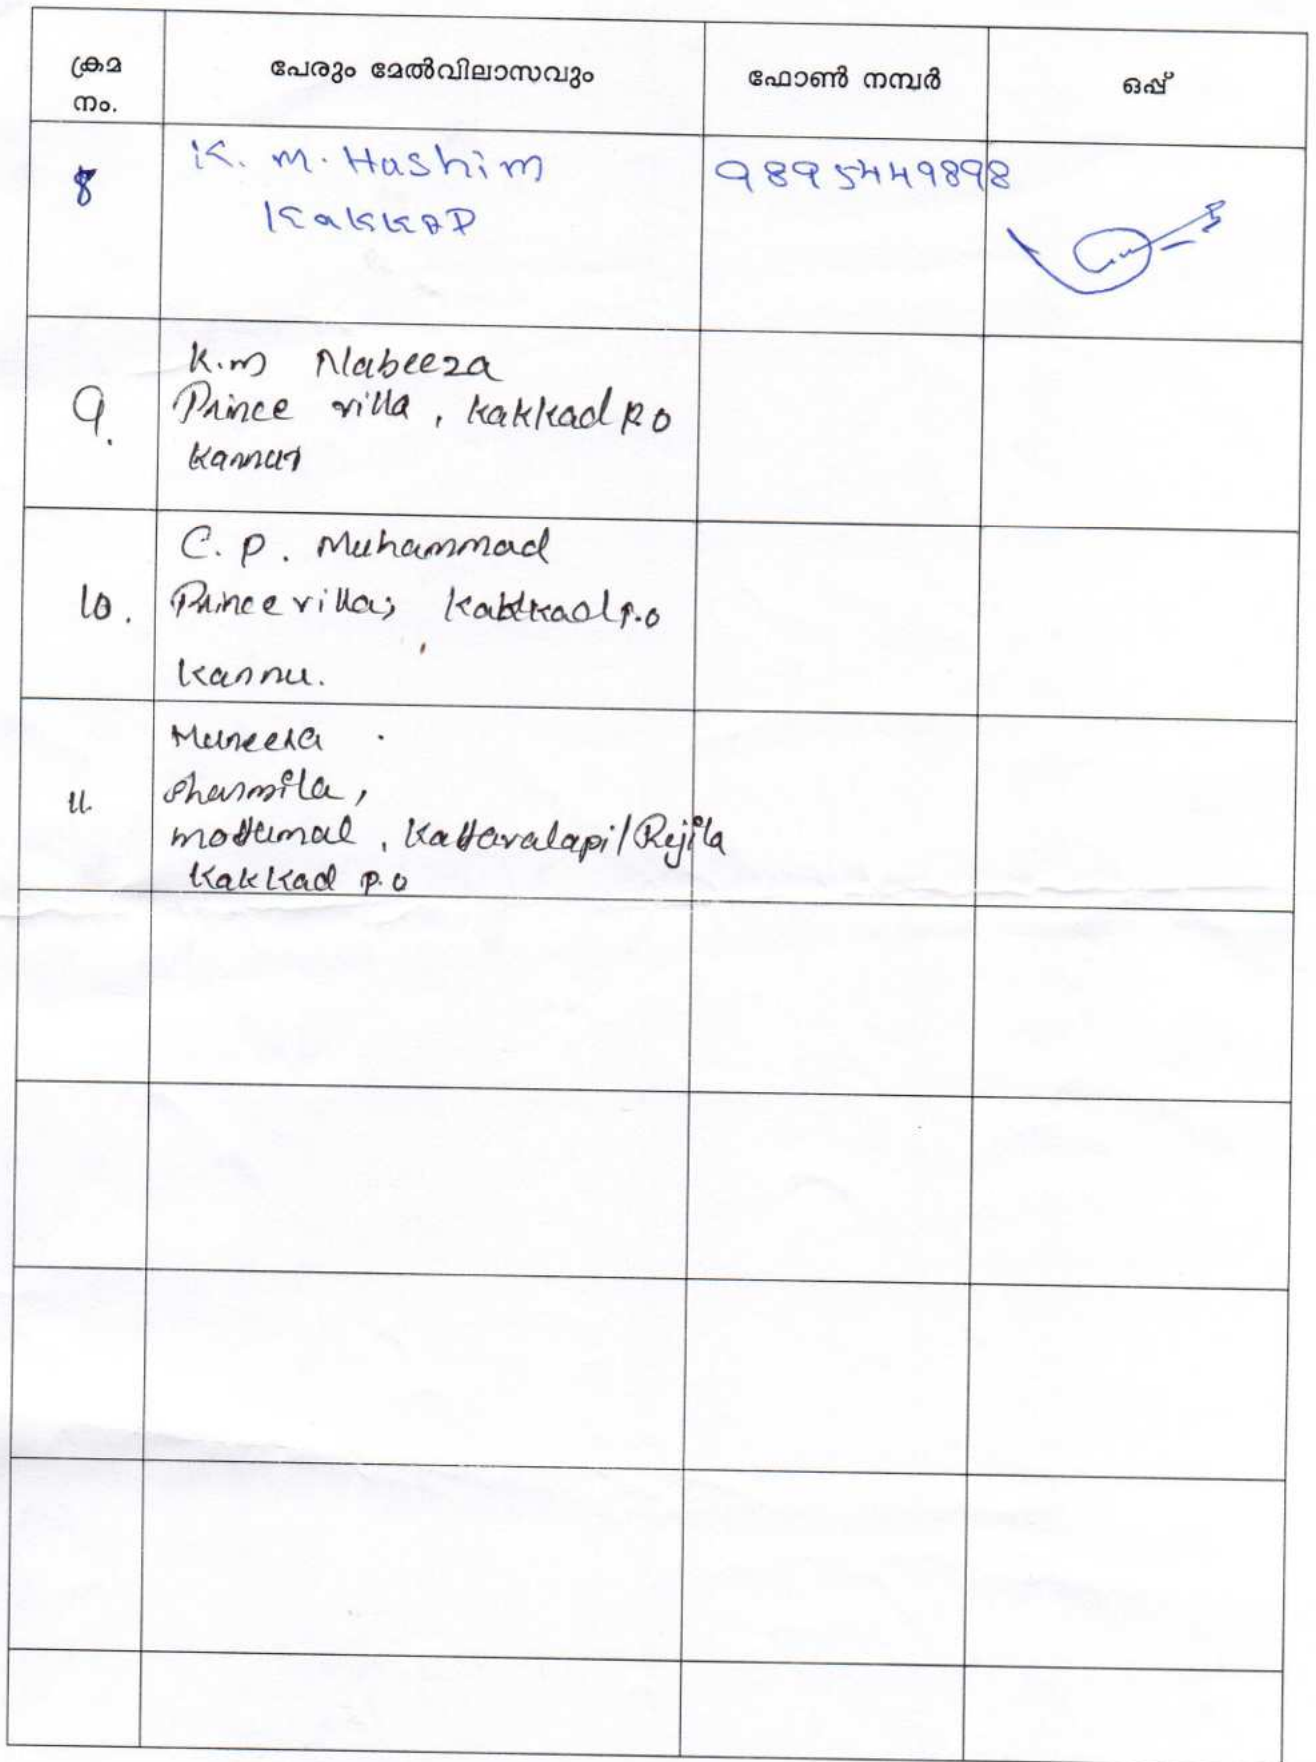 ക്രമ നം. പേരും മേൽവിലാസവും ഫോൺ നമ്പർ ഒപ്പ്
8 K. M. Hashim 9895449898
Kakkad
9. K.M Nabeesa
Prince villa, Kakkad P.O
Kannur
10. C. P. Muhammad
Prince villa, Kakkad P.O
Kannu.
11. Muneera
Sharmila,
Kattavalapil/Rejila
Kakkad P.O